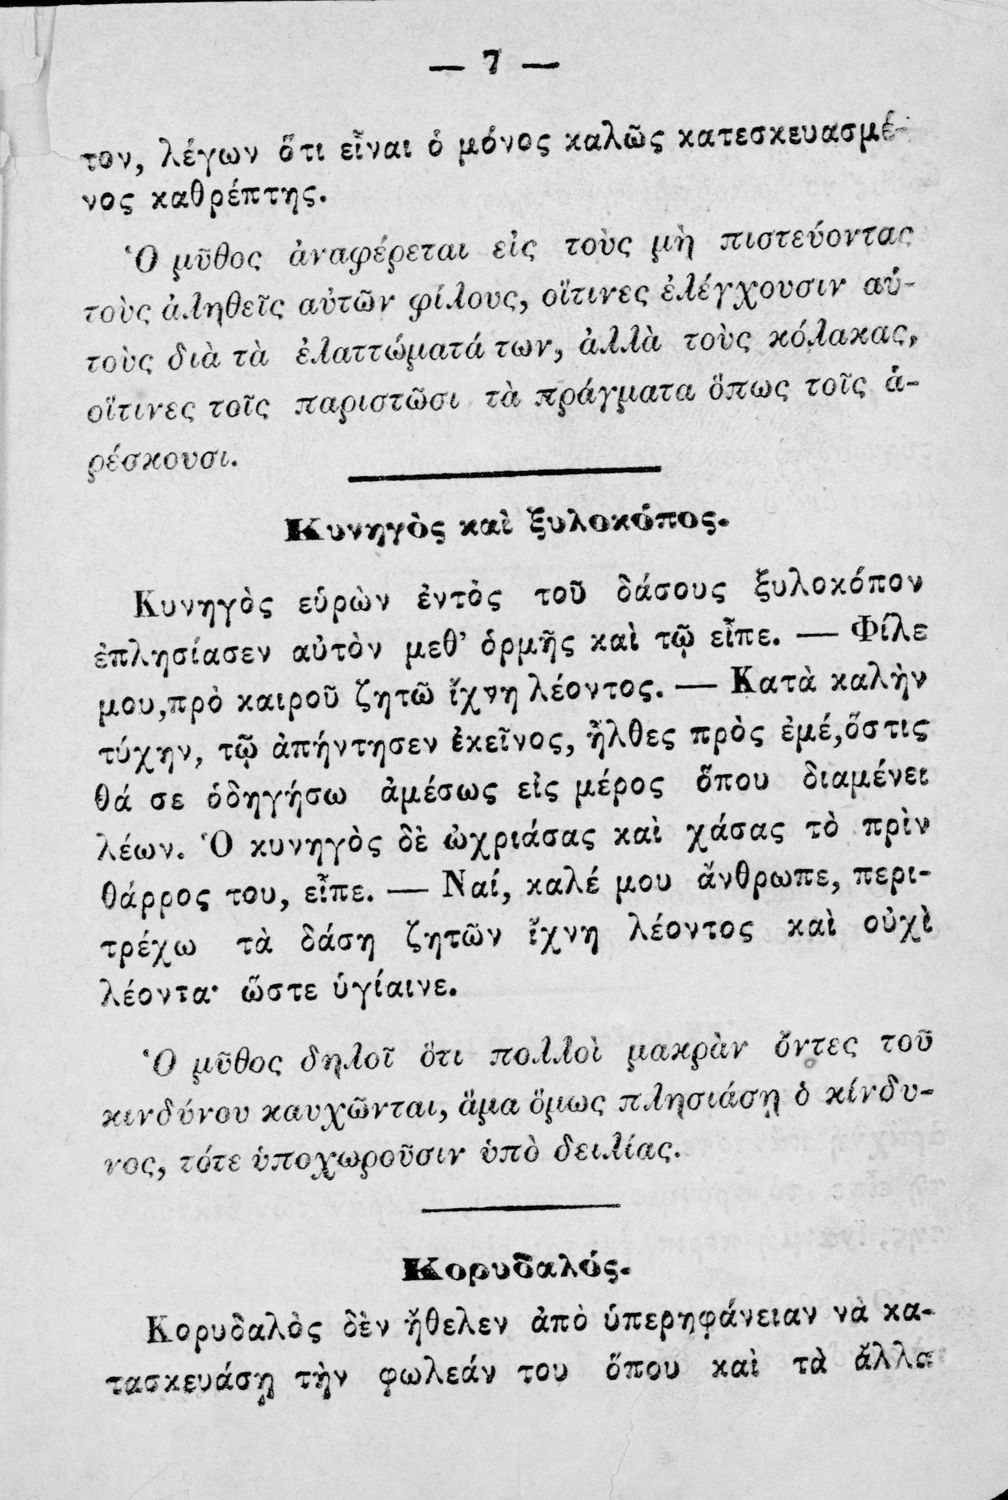 — 7 —
τον, λέγων ὅτι εἶναι ὁ μόνος καλῶς κατεσκευασμέ-
νος καθρέπτης.
Ὁ μῦθος ἀναφέρεται εἰς τοὺς μὴ πιστεύοντας
τοὺς ἀληθεῖς αὐτῶν φίλους, οἵτινες ἐλέγχουσιν αὐ-
τοὺς διὰ τὰ ἐλαττώματά των, ἀλλὰ τοὺς κόλακας,
οἵτινες τοῖς παριστῶσι τὰ πράγματα ὅπως τοῖς ἀ-
ρέσκουσι.
Κυνηγὸς καὶ ξυλοκόπος.
Κυνηγὸς εὑρὼν ἐντὸς τοῦ δάσους ξυλοκόπον
ἐπλησίασεν αὐτὸν μεθ' ὁρμῆς καὶ τῷ εἶπε. — Φίλε
μου,πρὸ καιροῦ ζητῶ ἴχνη λέοντος. — Κατὰ καλὴν
τύχην, τῷ ἀπήντησεν ἐκεῖνος, ἦλθες πρὸς ἐμέ,ὅστις
θά σε ὁδηγήσω ἀμέσως εἰς μέρος ὅπου διαμένει
λέων. Ὁ κυνηγὸς δὲ ὠχριάσας καὶ χάσας τὸ πρὶν
θάρρος του, εἶπε. — Ναί, καλέ μου ἄνθρωπε, περι-
τρέχω τὰ δάση ζητῶν ἴχνη λέοντος καὶ οὐχὶ
λέοντα· ὥστε ὑγίαινε.
Ὁ μῦθος δηλοῖ ὅτι πολλοὶ μακρὰν ὄντες τοῦ
κινδύνου καυχῶνται, ἅμα ὅμως πλησιάσῃ ὁ κίνδυ-
νος, τότε ὑποχωροῦσιν ὑπὸ δειλίας.
Κορυδαλός.
Κορυδαλὸς δὲν ἤθελεν ἀπὸ ὑπερηφάνειαν νὰ κα-
τασκευάσῃ τὴν φωλεάν του ὅπου καὶ τὰ ἄλλα